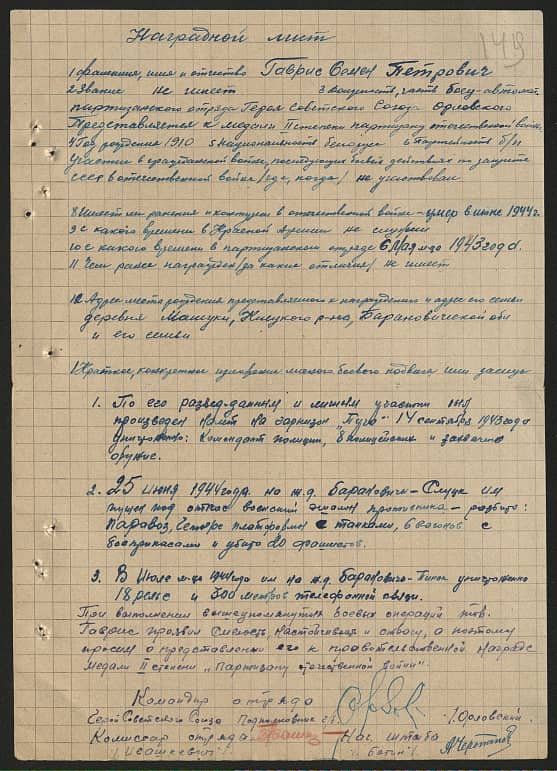 149
Наградной лист
1 фамилия, имя и отчество Гаврис Семен Петрович
2 Звание не имеет 3 должность, часть боец-автомат.
партизанского отряда Героя Советского Союза Орловского
Представляется к медали II степени партизану отечественной войны
4 Год рождения 1910 5 Национальность белорус 6 Партийность б/п
участие в гражданской войне, последующих боевых действиях по защите
СССР в отечественной войне /где, когда/ не участвовал
8 Имеет ли ранения и контузии в отечественной войне - умер в июне 1944г.
9 с какого времени в Красной Армии не служил
10 с какого времени в партизанском отряде 6 Мая м-ца 1943 года.
11 Чем ранее награжден /за какие отличия/ не имеет
12 Адрес места рождения представляемого к награждению и адрес его семьи
деревня Машуки, Клецкого р-на, Барановичской обл
и его семьи
1 Краткое, конкретное изложение личного боевого подвига или заслуг
1. По его развед-данным и личным участии был
произведен налет на гарнизон 14 сентября 1943 года
уничтожено: комендант полиции, 8 полицейских и захвачено
оружие.
2. 25 июня 1944 года на ж.д. Барановичи - Слуцк им
пущен под откос военский эшалон противника - разбито:
паравоз, четыре платформы с танками, 6 вагонов с
боеприпасами и убито 20 фашистов.
3. В Июле м-це 1944 года им на ж.д. Барановичи - Пинск уничтожено
18 рельс и 500 метров телефонной связи.
При выполнении вышеупомянутых боевых операций тов.
Гаврис проявил смелость настойчивость и отвагу, а поэтому
просим о представлении его к правительственной награде
медали II степени "Партизану отечественной войны".
Командир отряда
Герой Советского Союза Подполковник г/б /Орловский/
Комиссар отряда Нач. штаба
/Ивашкевич/